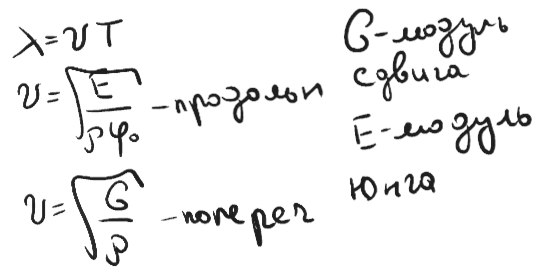 λ = υ T
υ = √(E / ρφ₀) - продольн
υ = √(G / ρ) - попереч
G - модуль
сдвига
E - модуль
Юнга